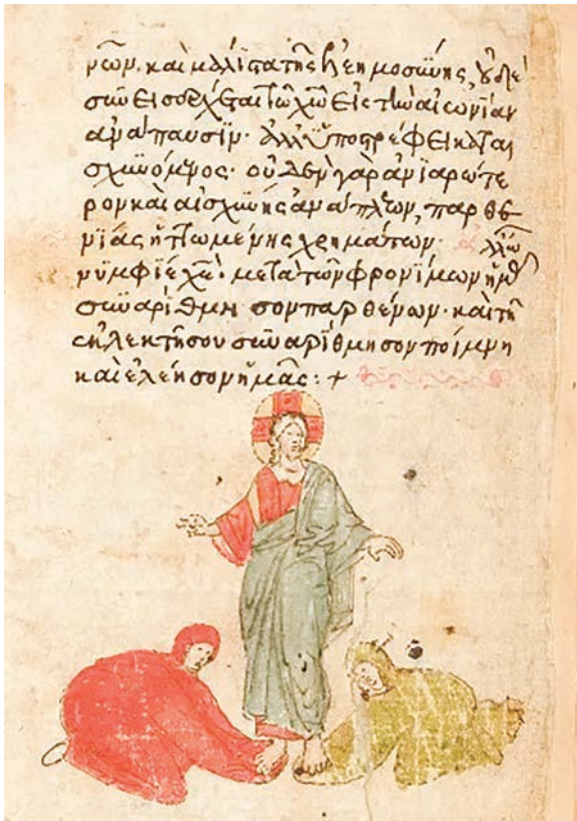 νων. καὶ μάλιστα τῆς ἐλεημοσύνης, οὐδεὶς
συνεισέρχεται τῶ χῶ εἰς τὴν αἰωνίαν
ἀνάπαυσιν· ἀλλ᾽ ὑποστρέφει καται
σχυνόμενος· οὐδὲν γὰρ ἀνιαρώτε
ρον καὶ αἰσχύνης ἀνάπλεων, παρθε
νίας ἡττωμένης χρημάτων· ἀλλ᾽ ὦ
νυμφίε χὲ· μετὰ τῶν φρονίμων ἡμᾶς
συναρίθμησον παρθένων· καὶ τῆ
ἐκλεκτῆ σου συναρίθμησον ποίμνη
καὶ ἐλέησον ἡμᾶς: +